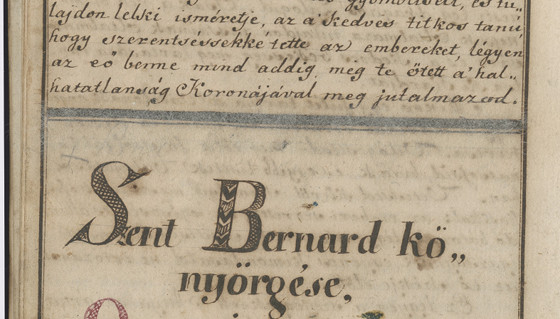 lajdon lelki isméretje, az a' kedves titkos tanú
hogy szerentséssekké tette az embereket, légyen
az eő benne mind addig, még te őtett á' hal„
hatatlanság Koronájával meg jutalmazod.
Szent Bernard kö„
nyörgése,